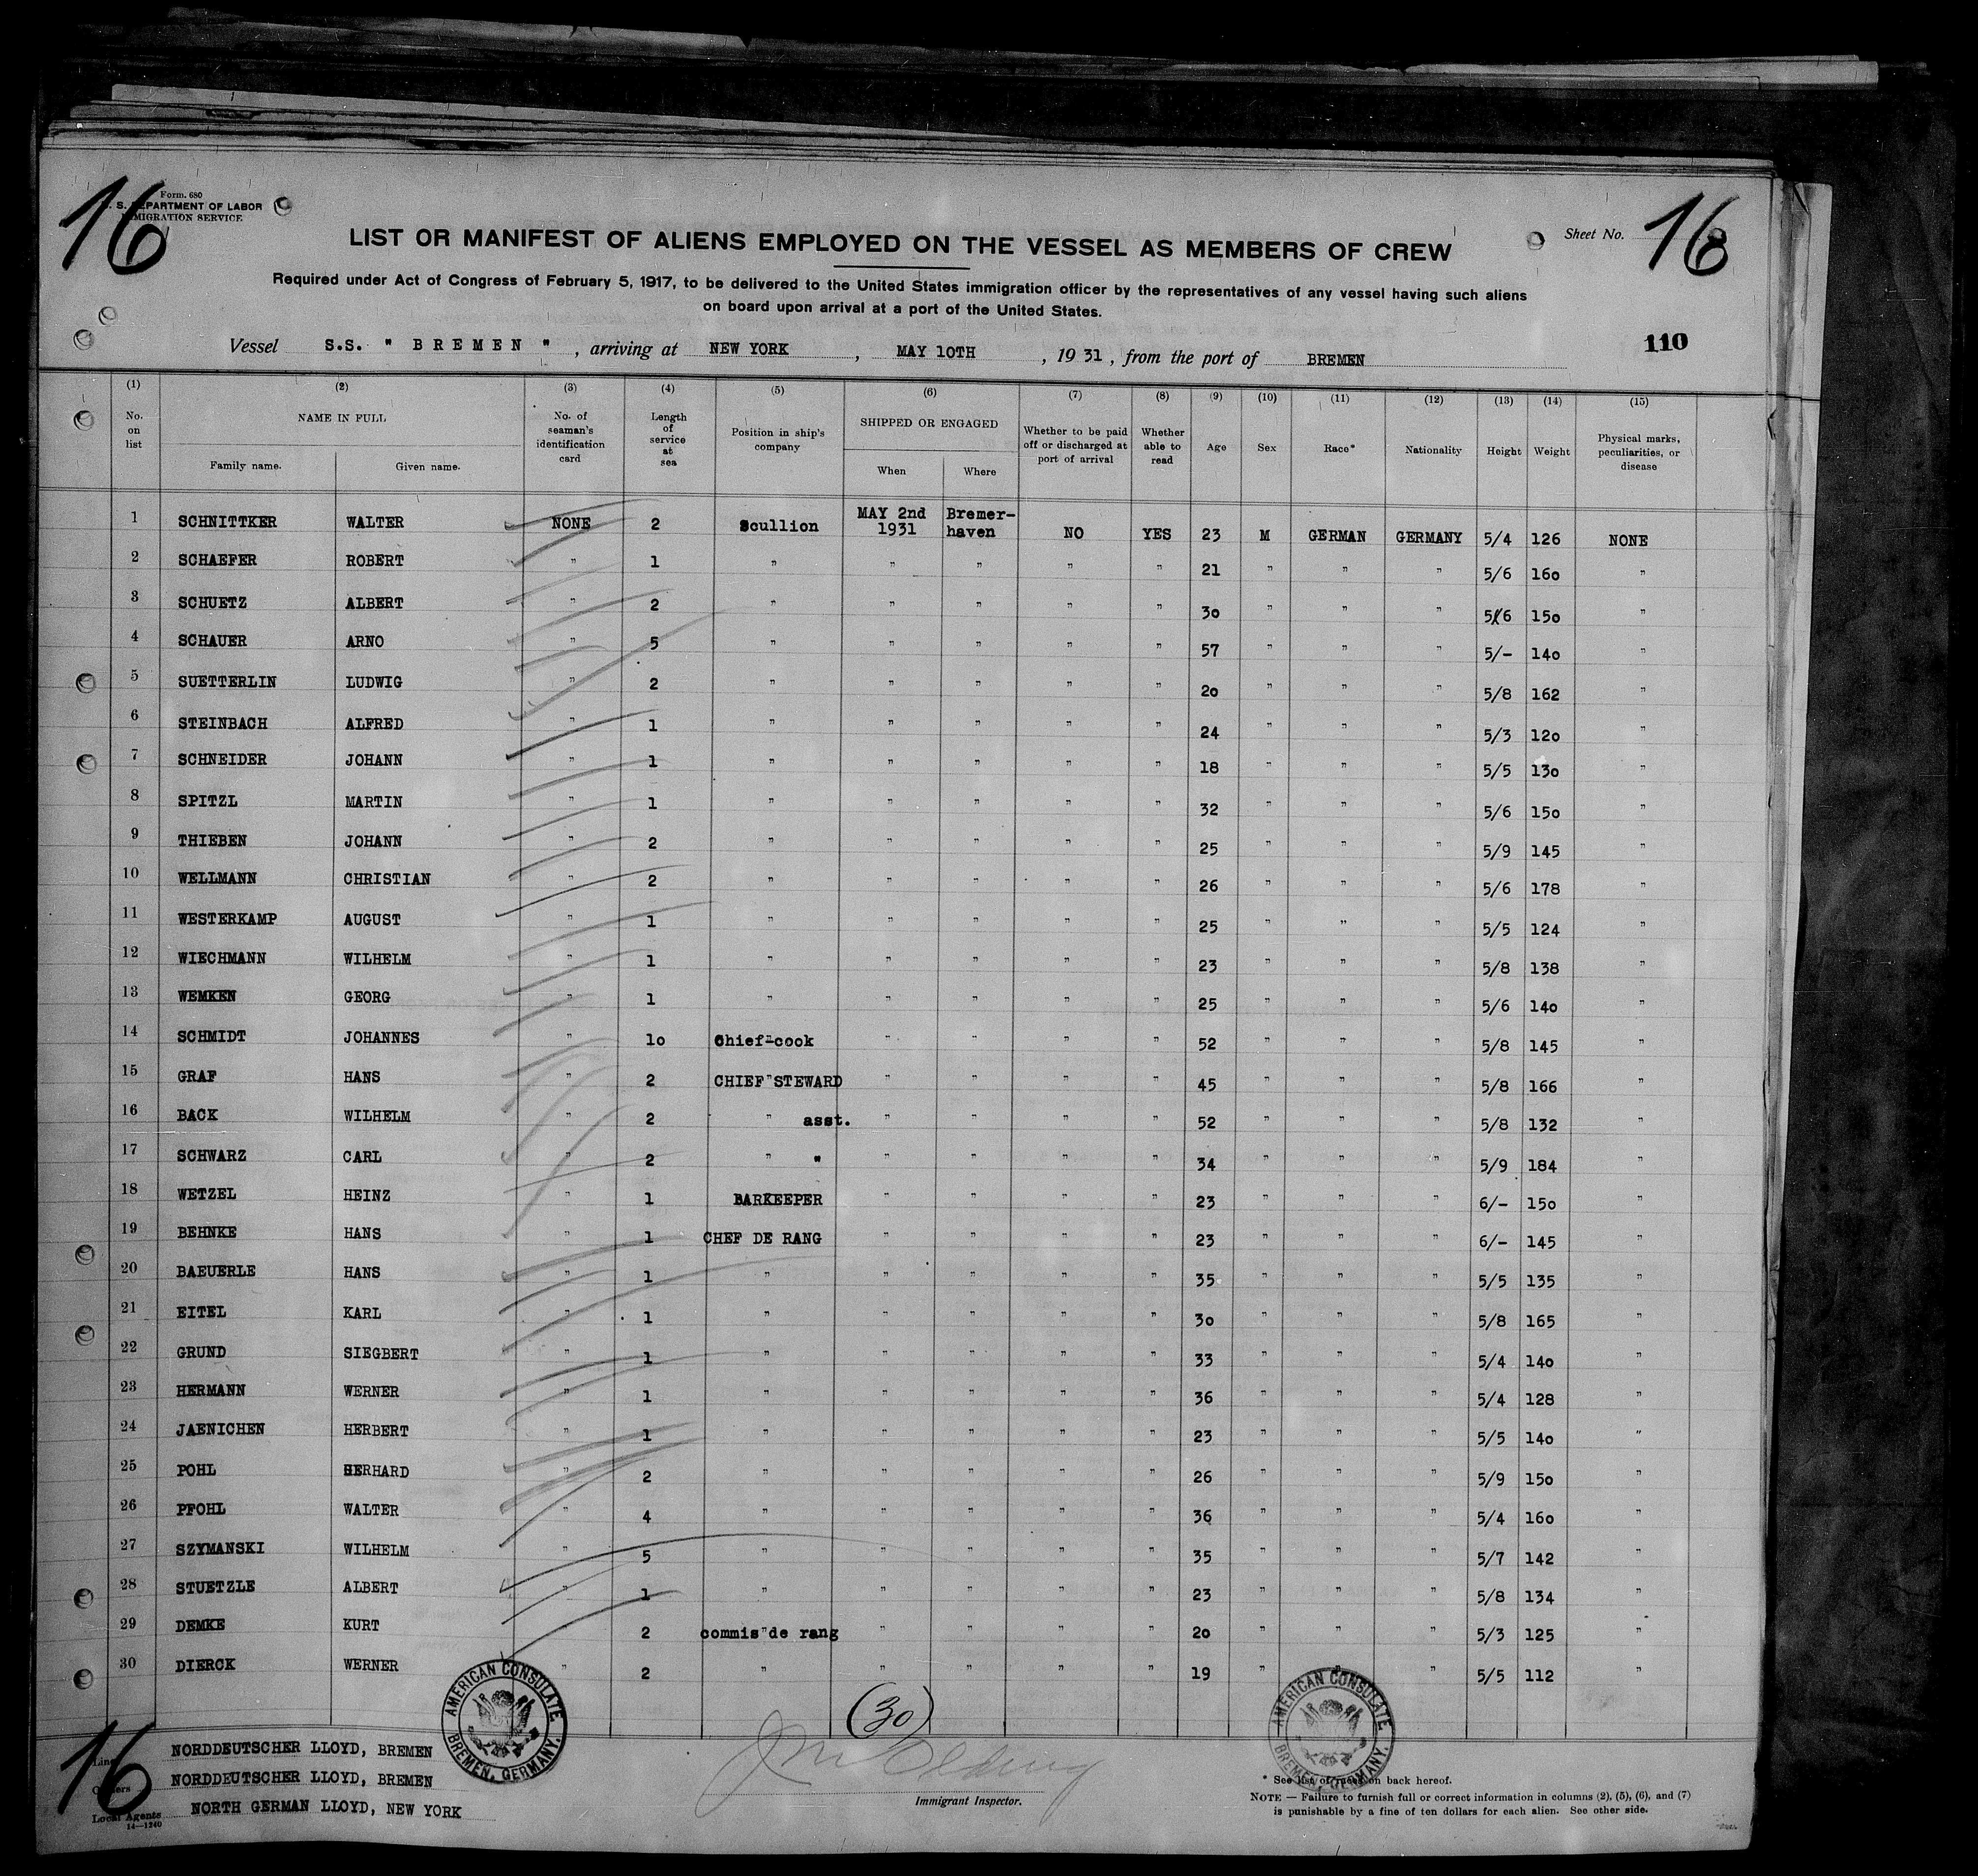 16
Form. 680
S. DEPARTMENT OF LABOR
IMMIGRATION SERVICE
LIST OR MANIFEST OF ALIENS EMPLOYED ON THE VESSEL AS MEMBERS OF CREW
Sheet No. 16
Required under Act of Congress of February 5, 1917, to be delivered to the United States immigration officer by the representatives of any vessel having such aliens
on board upon arrival at a port of the United States.
110
Vessel S.S. " BREMEN ", arriving at NEW YORK, MAY 10TH, 1931, from the port of BREMEN
(1) (2) (3) (4) (5) (6) (7) (8) (9) (10) (11) (12) (13) (14) (15)
No. on list NAME IN FULL Family name. Given name. No. of seaman's identification card Length of service at sea Position in ship's company SHIPPED OR ENGAGED When Where Whether to be paid off or discharged at port of arrival Whether able to read Age Sex Race* Nationality Height Weight Physical marks, peculiarities, or disease
1 SCHNITTKER WALTER NONE 2 Scullion MAY 2nd 1931 Bremer-haven NO YES 23 M GERMAN GERMANY 5/4 126 NONE
2 SCHAEFER ROBERT " 1 " " " " " 21 " " " 5/6 160 "
3 SCHUETZ ALBERT " 2 " " " " " 30 " " " 5/6 150 "
4 SCHAUER ARNO " 5 " " " " " 57 " " " 5/- 140 "
5 SUETTERLIN LUDWIG " 2 " " " " " 20 " " " 5/8 162 "
6 STEINBACH ALFRED " 1 " " " " " 24 " " " 5/3 120 "
7 SCHNEIDER JOHANN " 1 " " " " " 18 " " " 5/5 130 "
8 SPITZL MARTIN " 1 " " " " " 32 " " " 5/6 150 "
9 THIEBEN JOHANN " 2 " " " " " 25 " " " 5/9 145 "
10 WELLMANN CHRISTIAN " 2 " " " " " 26 " " " 5/6 178 "
11 WESTERKAMP AUGUST " 1 " " " " " 25 " " " 5/5 124 "
12 WIECHMANN WILHELM " 1 " " " " " 23 " " " 5/8 138 "
13 WEMKEN GEORG " 1 " " " " " 25 " " " 5/6 140 "
14 SCHMIDT JOHANNES " 10 Chief-cook " " " " 52 " " " 5/8 145 "
15 GRAF HANS " 2 CHIEF STEWARD " " " " 45 " " " 5/8 166 "
16 BACK WILHELM " 2 " asst. " " " " 52 " " " 5/8 132 "
17 SCHWARZ CARL " 2 " " " " " " 34 " " " 5/9 184 "
18 WETZEL HEINZ " 1 BARKEEPER " " " " 23 " " " 6/- 150 "
19 BEHNKE HANS " 1 CHEF DE RANG " " " " 23 " " " 6/- 145 "
20 BAEUERLE HANS " 1 " " " " " 35 " " " 5/5 135 "
21 EITEL KARL " 1 " " " " " 30 " " " 5/8 165 "
22 GRUND SIEGBERT " 1 " " " " " 33 " " " 5/4 140 "
23 HERMANN WERNER " 1 " " " " " 36 " " " 5/4 128 "
24 JAENICHEN HERBERT " 1 " " " " " 23 " " " 5/5 140 "
25 POHL GERHARD " 2 " " " " " 26 " " " 5/9 150 "
26 PFOHL WALTER " 4 " " " " " 36 " " " 5/4 160 "
27 SZYMANSKI WILHELM " 5 " " " " " 35 " " " 5/7 142 "
28 STUETZLE ALBERT " 1 " " " " " 23 " " " 5/8 134 "
29 DEMKE KURT " 2 commis de rang " " " " 20 " " " 5/3 125 "
30 DIERCK WERNER " 2 " " " " " 19 " " " 5/5 112 "
(30)
AMERICAN CONSULATE BREMEN, GERMANY.
AMERICAN CONSULATE BREMEN, GERMANY.
16
Line NORDDEUTSCHER LLOYD, BREMEN
Owners NORDDEUTSCHER LLOYD, BREMEN
Local Agents NORTH GERMAN LLOYD, NEW YORK
14—1240
Immigrant Inspector.
* See list of races on back hereof.
NOTE — Failure to furnish full or correct information in columns (2), (5), (6), and (7)
is punishable by a fine of ten dollars for each alien. See other side.